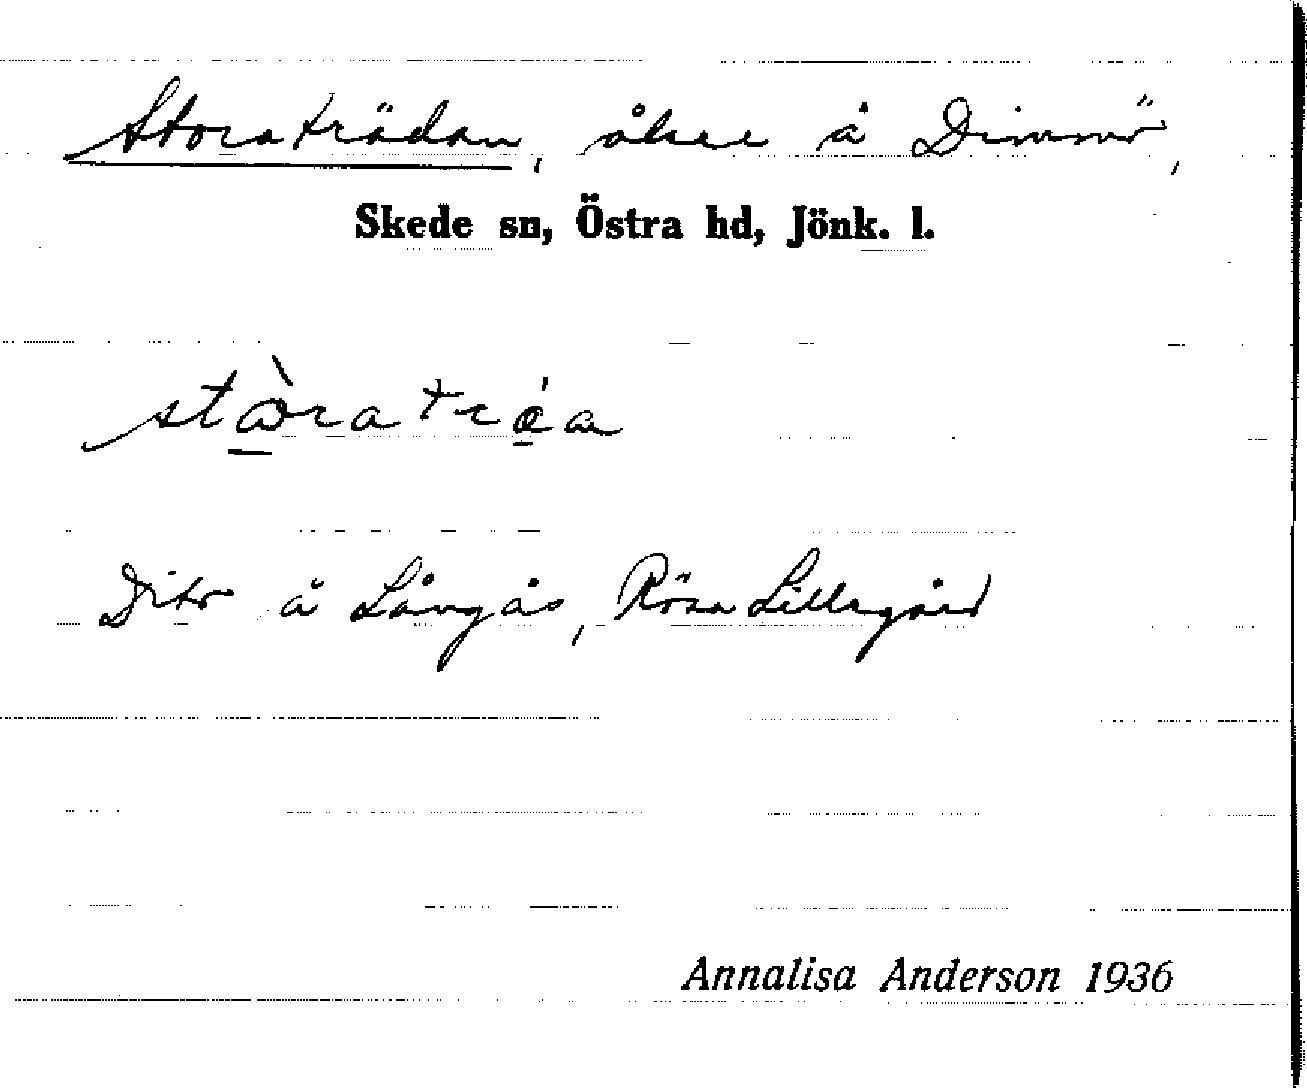 Storaträdan, åker å Dimmö,
Skede sn, Östra hd, Jönk. l.
stòratréa
Dito å Långås, Rösa Lillegård
Annalisa Anderson 1936